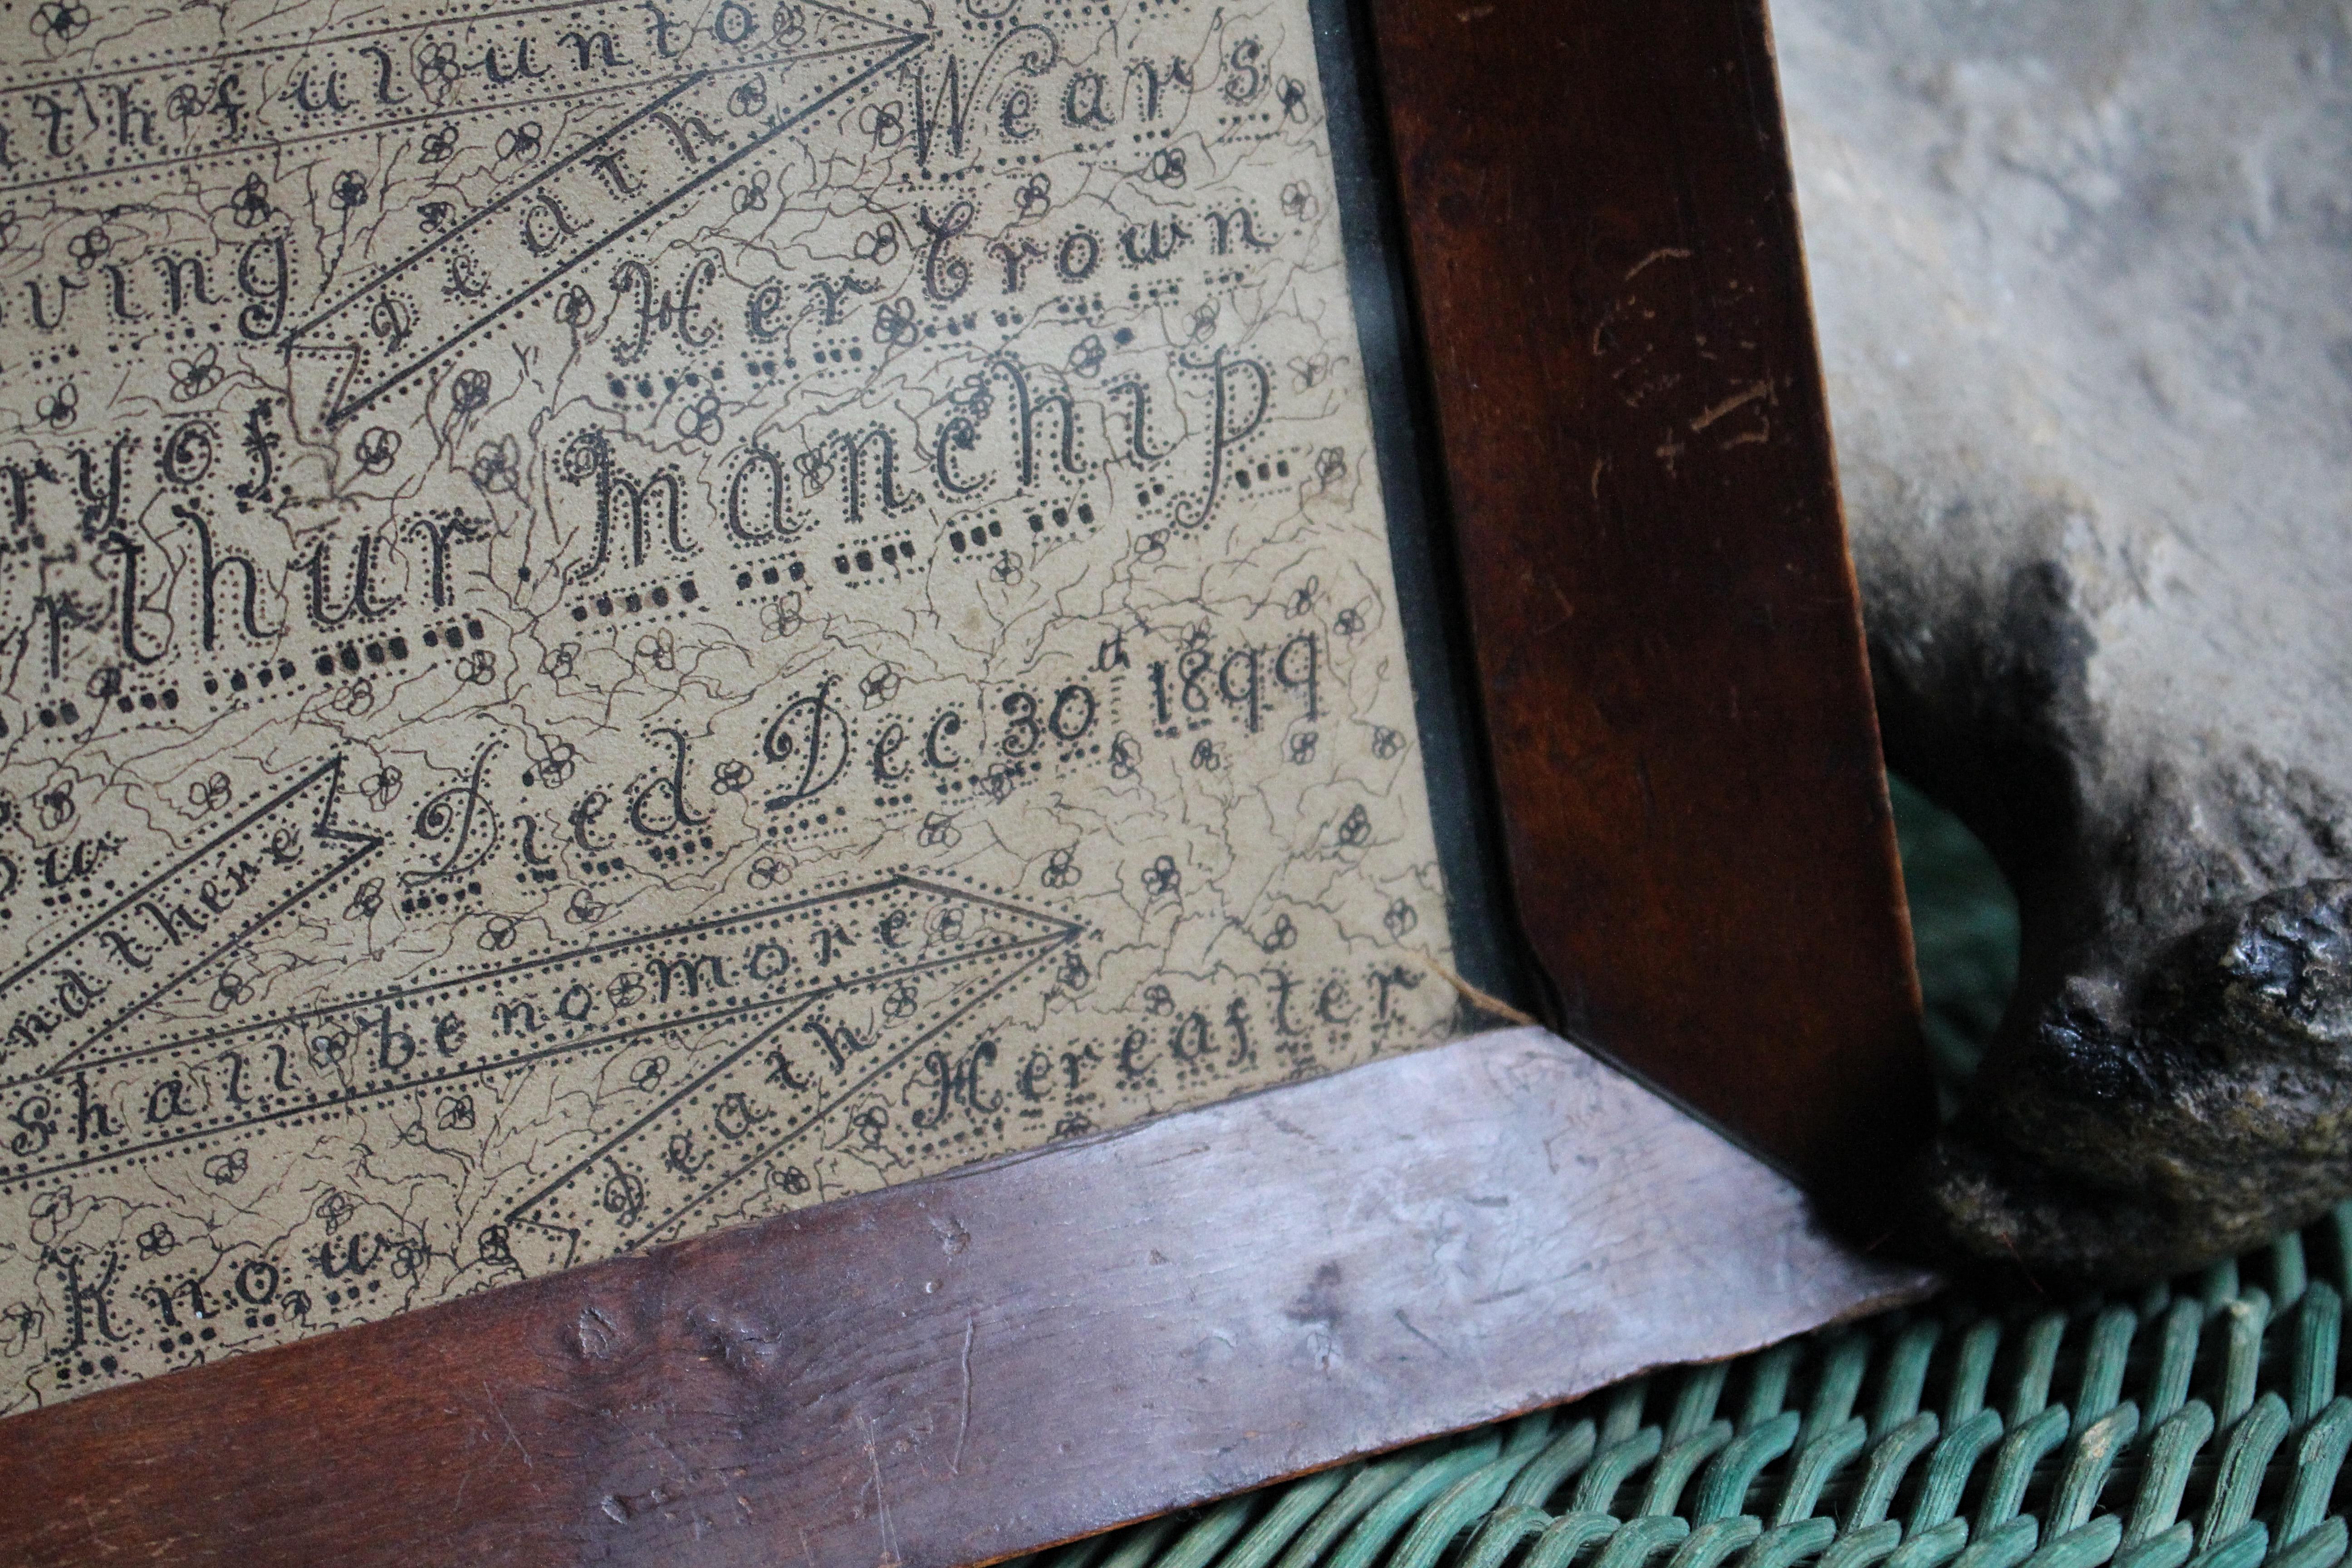 thful unto
Death
Wears
ving
Her Crown
ry of
rthur Manchip
ow
nd there
Died Dec 30th 1899
shall be no more
Death
Hereafter
Know